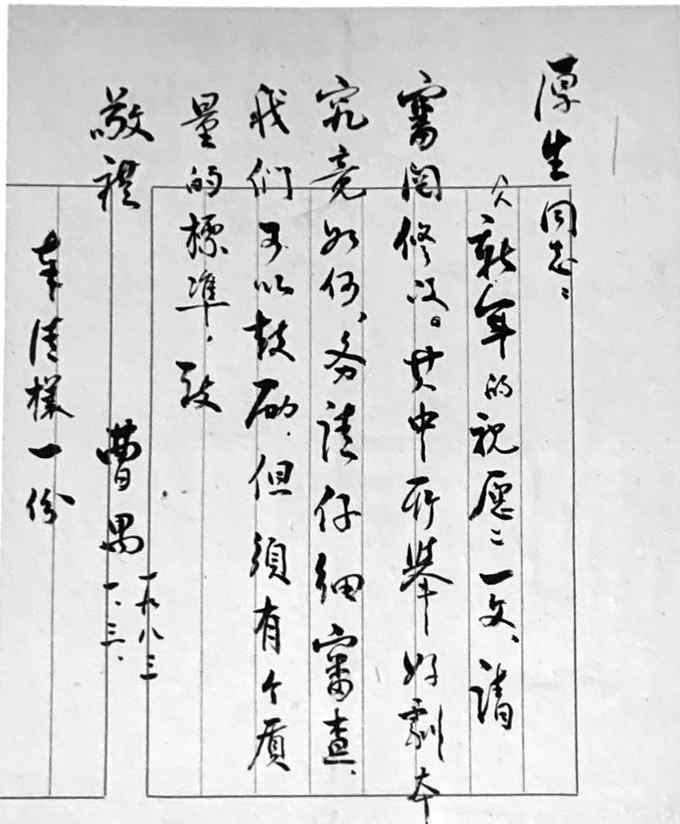 厚生同志：
《新年的祝愿》一文、请
審阅修改。其中所举好剧本
究竟如何、务请仔细審查、
我们可以鼓励．但须有个质
量的標準．致
敬禮
曹禺
一九八三
一、三．
奉清樣一份